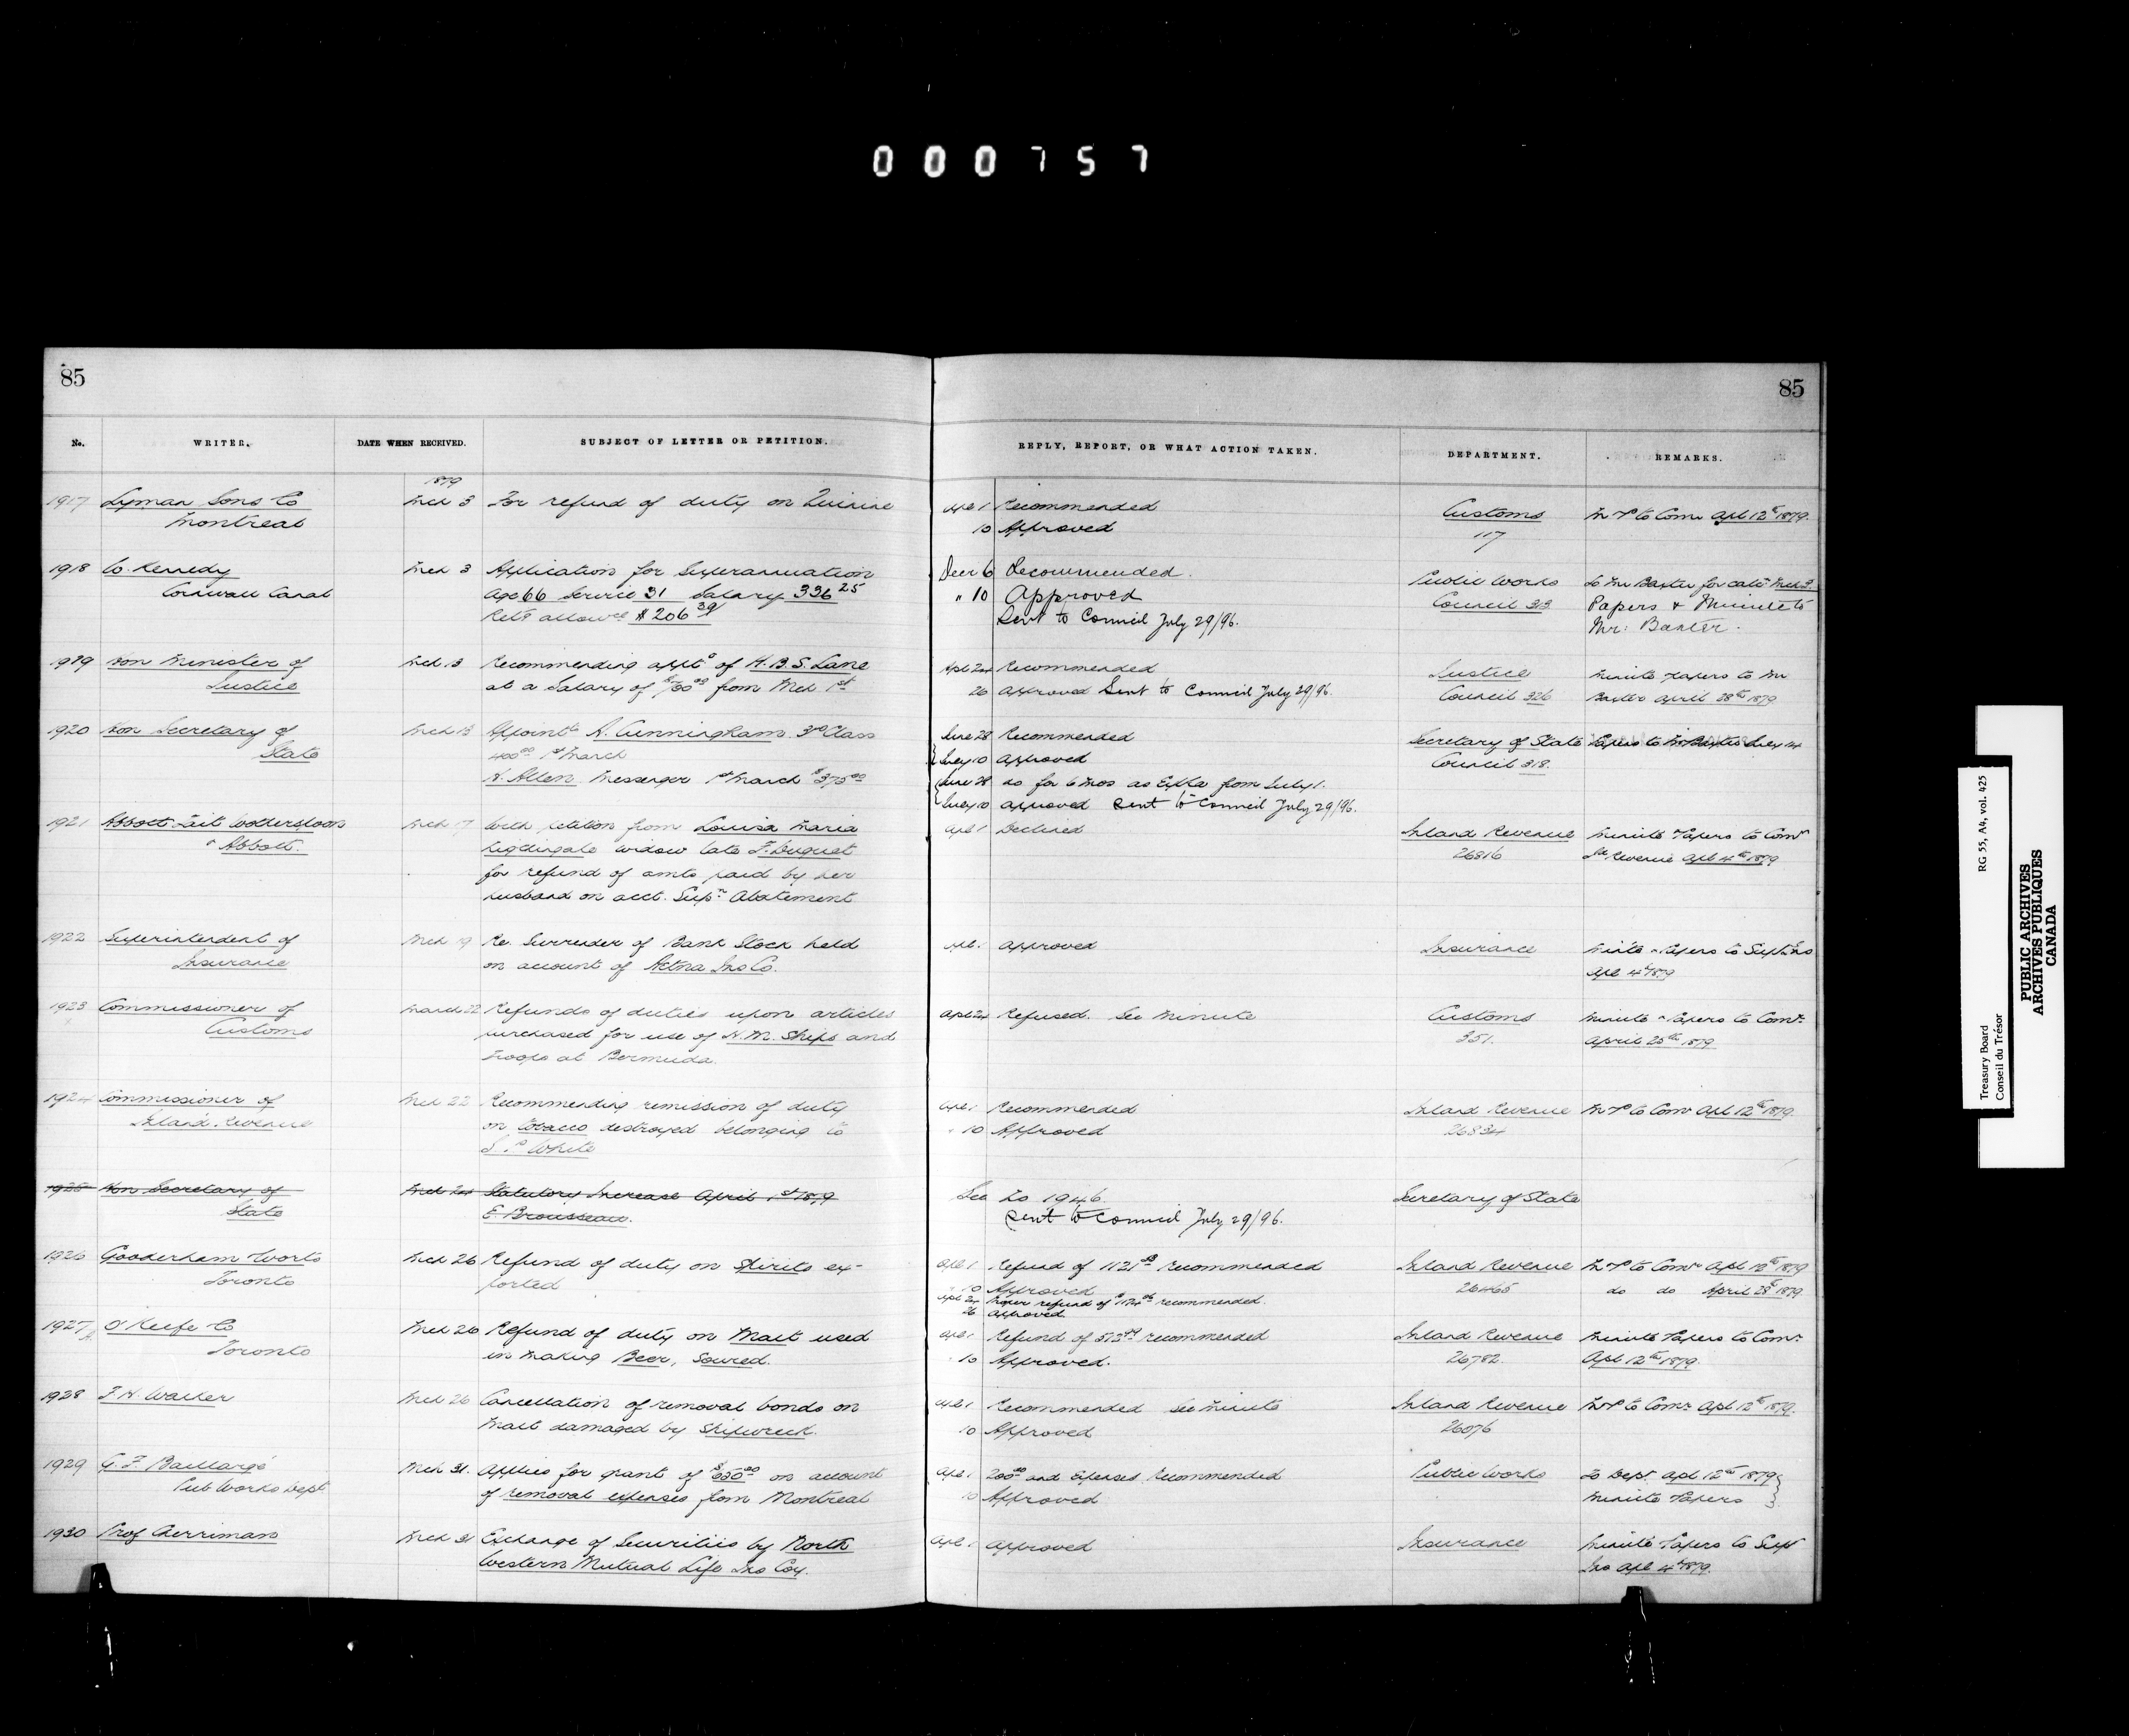 000757
85
85
No. WRITER. DATE WHEN RECEIVED. SUBJECT OF LETTER OR PETITION. REPLY, REPORT, OR WHAT ACTION TAKEN. DEPARTMENT. REMARKS.
1879
1917 Lyman Sons Co Mch 3 For refund of duty on Quinine Apl 1 Recommended Customs M & P to Comr Apl 12th 1879.
Montreal 10 Approved 117
1918 W. Kennedy Mch 3 Application for Superannuation Decr 6 Recommended. Public Works To Mr Baxter for calc. Mch 3.
Cornwall Canal Age 66 Service 31 Salary 336 25 " 10 Approved Council 313 Papers & Minute to
Retg allowce $206 39 Sent to Council July 29/96. Mr: Baxter.
1919 Hon Minister of Mch 13 Recommending appt of H.B.S. Lane Apl 24 Recommended Justice Minute Papers to Mr
Justice at a Salary of from Mch 1st 26 Approved Sent to Council July 29/96. Council 326 Baxter April 28th 1879
1920 Hon Secretary of Mch 13 Appointt A. Cunningham 3rd Class June 28 Recommended Secretary of State Papers to Mr Baxter July 14
State 400 00 1st March July 10 Approved Council 318.
H. Allen Messenger 1st March June 28 do for 6 mos as Extra from July 1.
July 10 approved Sent to Council July 29/96.
1921 Abbott Tait Wotherspoon Mch 17 With petition from Louisa Maria Apl 1 Declined Inland Revenue Minute Papers to Comr
& Abbott. Nightingale widow late F. Duquet 26816 Id Revenue Apl 4th 1879
for refund of amts paid by her
husband on acct. Supn Abatement
1922 Superintendent of Mch 19 Re. Surrender of Bank Stock held Apl 1 Approved Insurance Minute & Papers to Supt Ins
Insurance on account of Aetna Ins Co. Apl 4th 1879
1923 Commissioner of March 22 Refunds of duties upon articles Apl 24 Refused. See Minute Customs Minute & Papers to Comr.
Customs purchased for use of H.M. Ships and 351. April 25th 1879
Troops at Bermuda.
1924 Commissioner of Mch 22 Recommending remission of duty Apl 1 Recommended Inland Revenue M & P to Comr Apl 12th 1879
Inland Revenue on Tobacco destroyed belonging to " 10 Approved 26834
White
1925 Hon Secretary of Mch 24 Statutory Increase April 1st 1879 See No 1946. Secretary of State
State E. Brousseau. Sent to Council July 29/96.
1926 Gooderham & Worts Mch 26 Refund of duty on Spirits ex- Apl 1 Refund of recommended Inland Revenue M & P to Comr Apl 12th 1879
Toronto ported 10 Approved 26465 do do April 28th 1879
Apl 24 refund of recommended.
26 Approved
1927 O'Keefe Co Mch 26 Refund of duty on Malt used Apl 1 Refund of recommended Inland Revenue Minute Papers to Comr.
Toronto in making Beer, Soured. " 10 Approved. 26782. Apl 12th 1879.
1928 F.H. Walker Mch 26 Cancellation of removal bonds on Apl 1 Recommended See Minute Inland Revenue M & P to Comr. Apl 12th 1879.
Malt damaged by Shipwreck. 10 Approved 26076
1929 G.F. Baillargé Mch 31. Applies for grant of on account Apl 1 200 00 and Expenses Recommended Public Works To Dept. Apl 12th 1879
Pub Works Dept of removal expenses from Montreal 10 Approved Minute Papers
1930 Prof Cherriman Mch 31 Exchange of Securities by North Apl 1 Approved Insurance Minute Papers to Supt
Western Mutual Life Ins Coy. Ins Apl 4th 1879.
Treasury Board RG 55, A4, vol. 425
Conseil du Trésor
PUBLIC ARCHIVES
ARCHIVES PUBLIQUES
CANADA